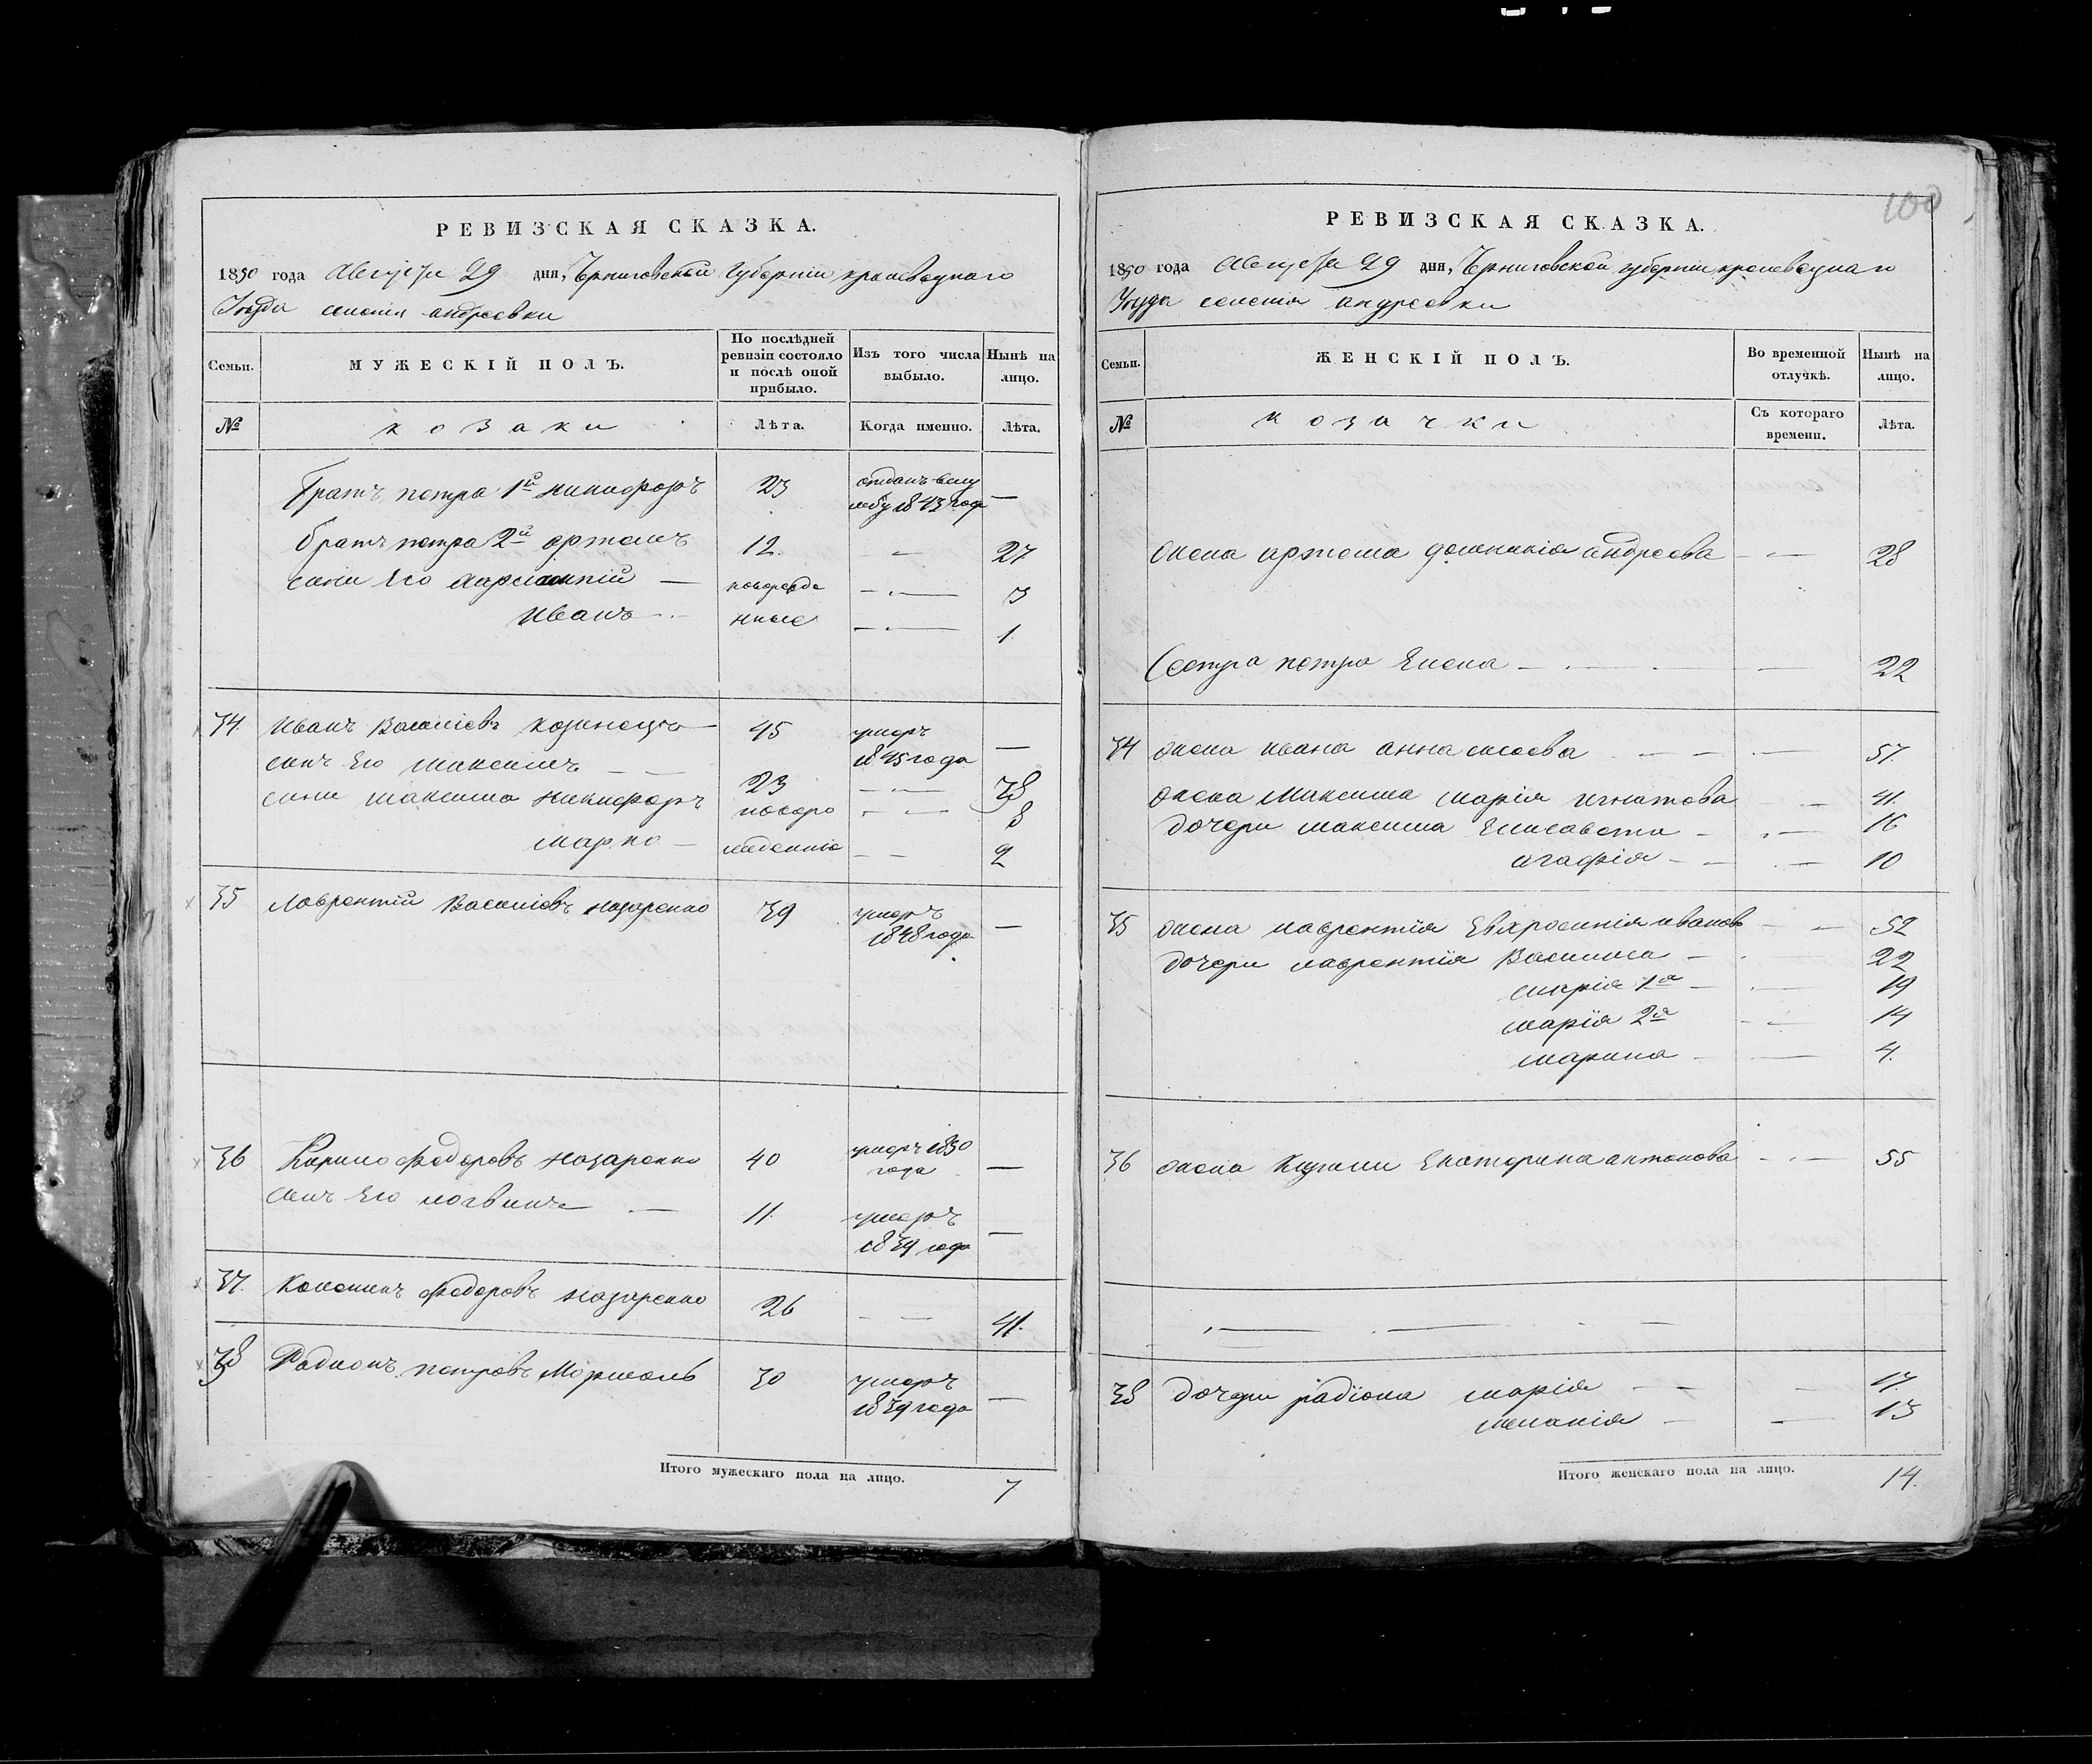 100
РЕВИЗСКАЯ СКАЗКА.
1850 года Августа 29 дня, Черниговской Губерніи кролевецкаго
Уезда селенія андреевки
Семьи.
МУЖЕСКІЙ ПОЛЪ.
По послѣдней ревизіи состояло и послѣ оной прибыло.
Изъ того числа выбыло.
Нынѣ на лицо.
№
козаки
Лѣта.
Когда именно.
Лѣта.
Братъ петра 1й никифоръ 23 отданъ 1843 года —
братъ петра 2й артемъ 12. — 27
сини его новорожде — 3
Иванъ — нные — 1
34. Иванъ Василіевъ 45 умеръ 1845 года —
синъ Его максимъ — 23 — 38
сини максима никифоръ новоро — 8
марко — жденніе — 2
35 лаврентій Василіевъ назаренко 39 умеръ 1848 года —
36 Федоровъ назаренко 40 умеръ 1850 года —
синъ Его логвинъ — 11. умеръ 1839 года —
37. Федоровъ назаренко 26 — 41.
38 Радионъ петровъ 30 умеръ 1839 года —
Итого мужескаго пола на лицо. 7
РЕВИЗСКАЯ СКАЗКА.
1850 года Августа 29 дня, Черниговской губерніи кролевецкаго
Уезда селенія андреевки
Семьи.
ЖЕНСКІЙ ПОЛЪ.
Во временной отлучкѣ.
Нынѣ на лицо.
№
козачки
Съ котораго времени.
Лѣта.
жена артема домникія андреева — 28
Сестра петра Елена — 22
34 жена ивана анна — 57.
жена Максима марія игнатова — 41.
дочери максима Елисавета — 16
агафія — 10
35 жена лаврентія Евхросинія иванов — 52
дочери лаврентія Василиса — 22
марія 1я — 19
марія 2я — 14
марина — 4.
36 жена Екатерина антонова — 55
38 дочери радіона марія — 17.
меланія — 13
Итого женскаго пола на лицо. 14.